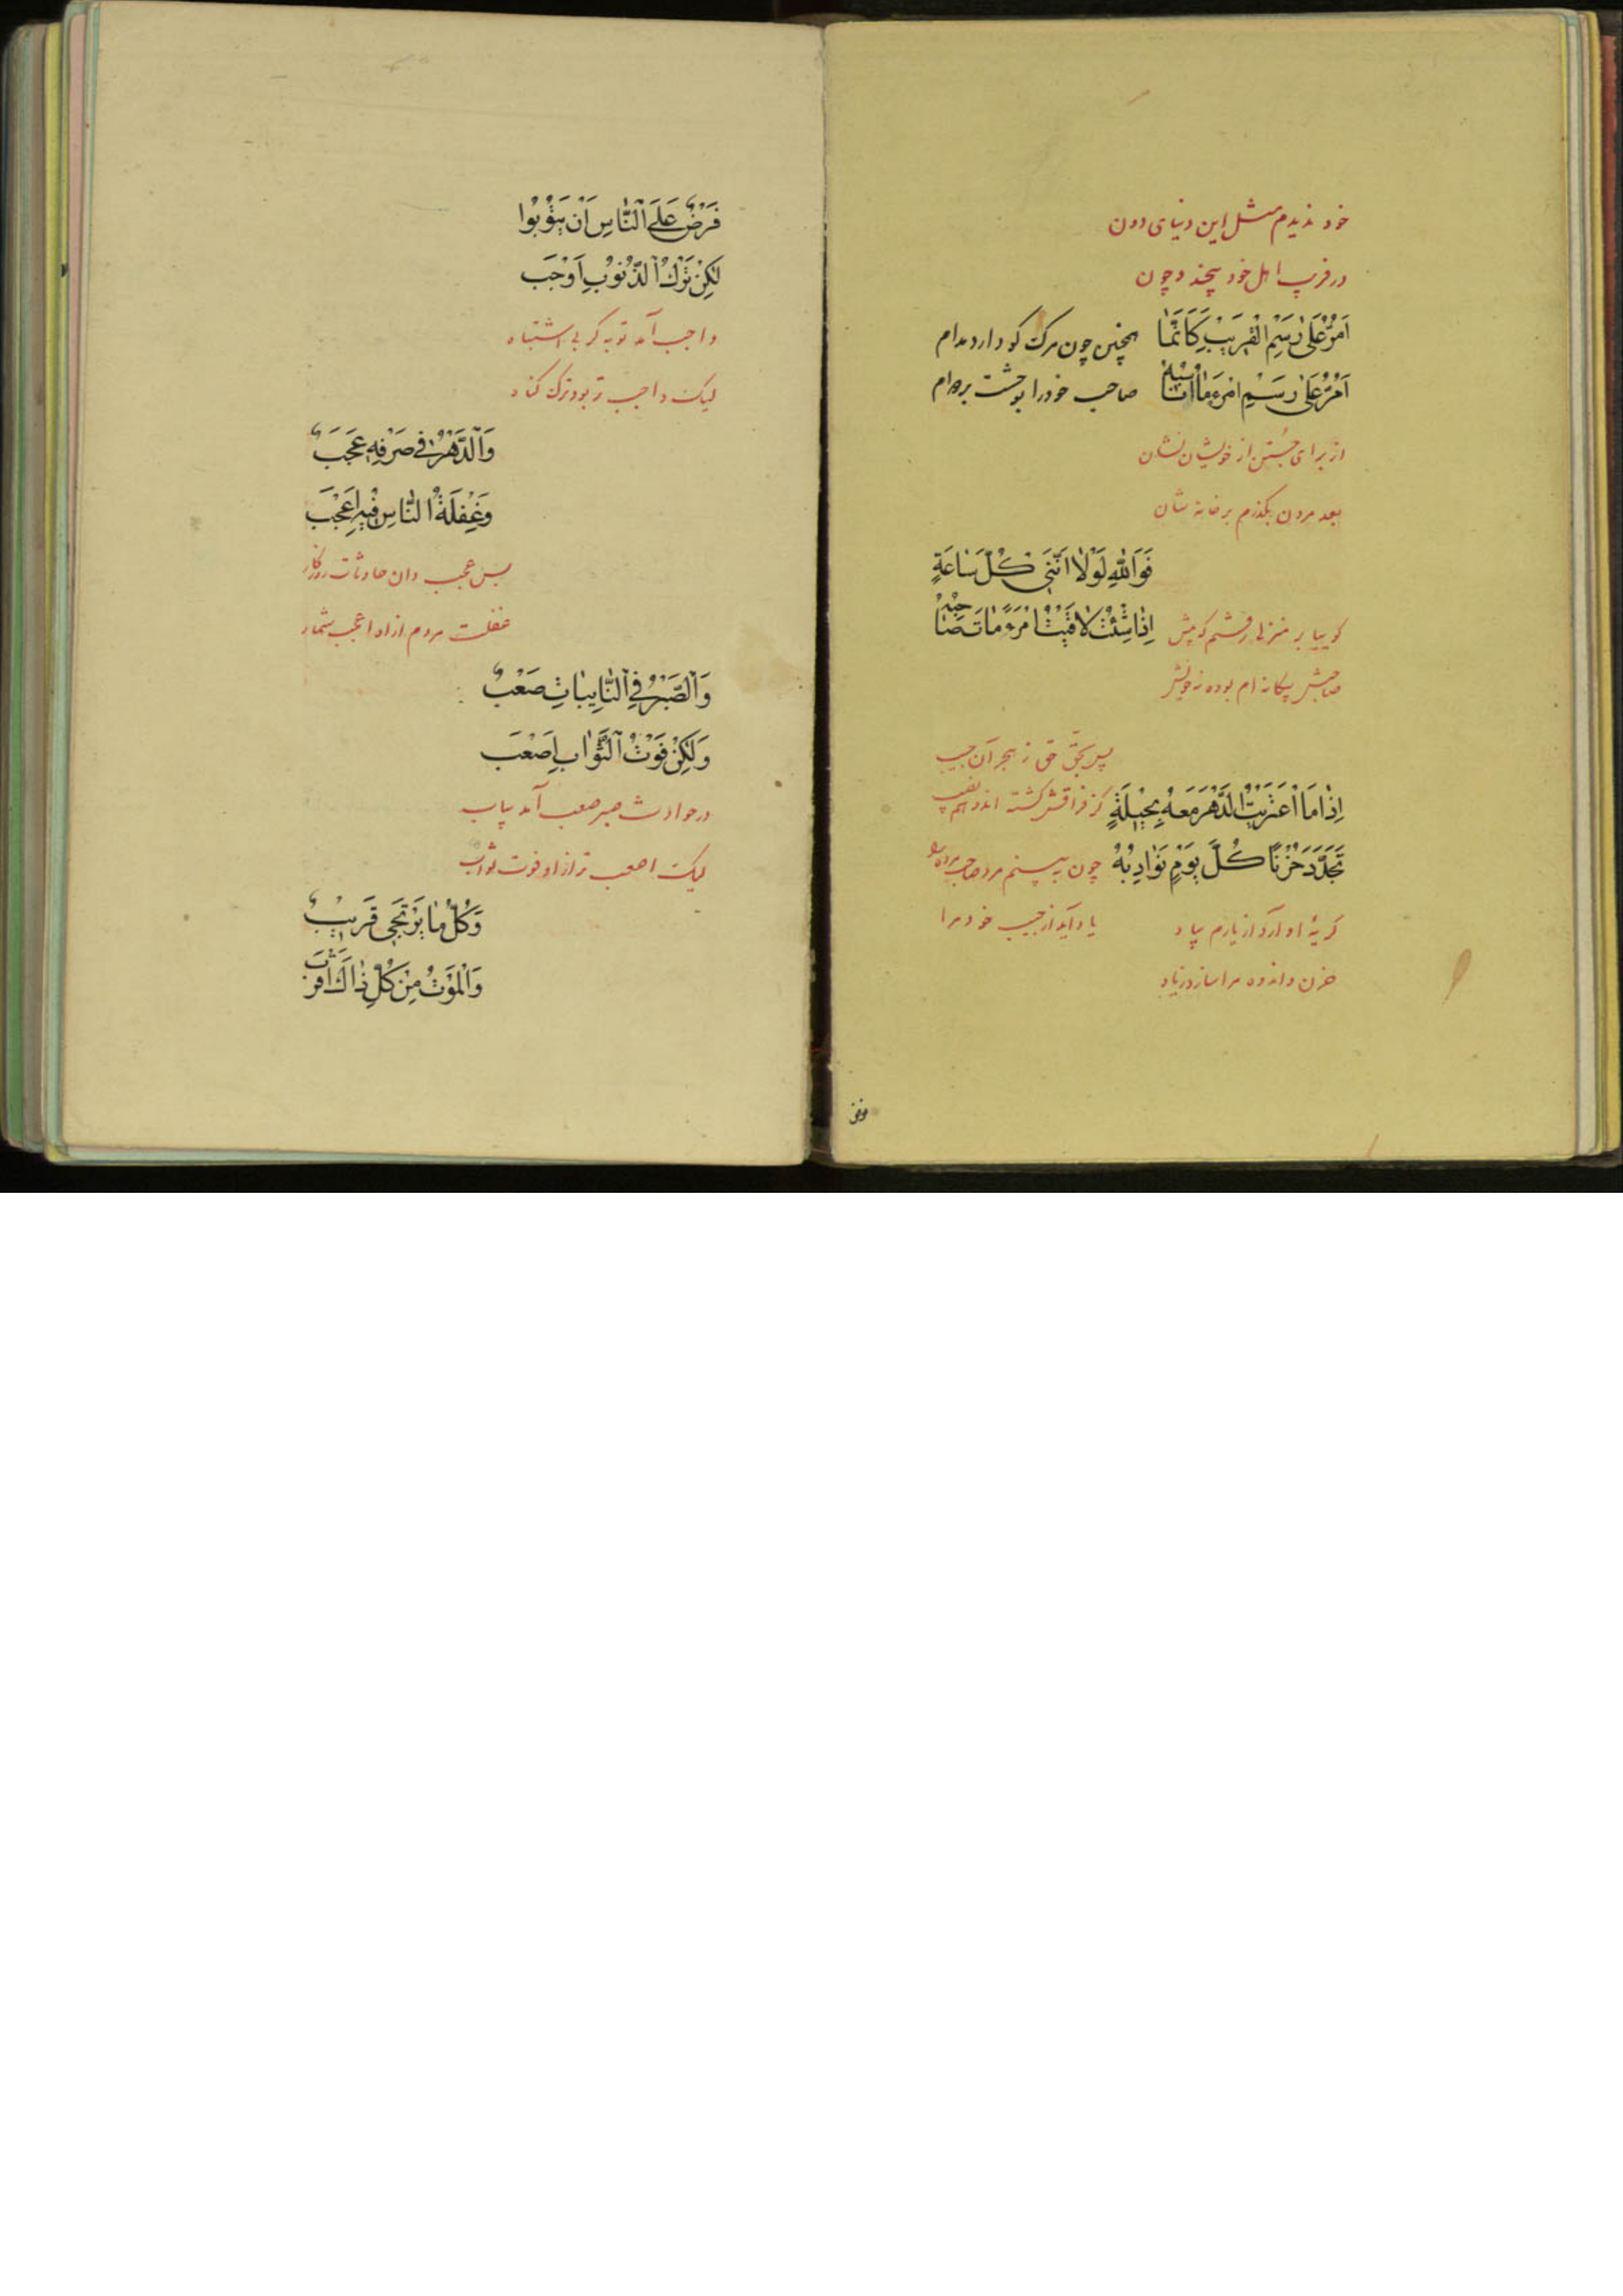 خود ندیدم مثل این دنیای دون
در فریب اهل خود بیحد و چون
اَمُرُّ عَلیٰ رَسْمِ الْقَریبِ کَاَنَّمٰا
همچنین چون مرگ کو دارد مدام
اَمُرُّ عَلیٰ رَسْمِ امْرَءٍ مٰا اُنٰاسِبُهْ
صاحب خود را بوحشت بردوام
از برای جستن از خویشان نشان
بعد مردن بگذرم بر خانه شان
فَوَاللّٰهِ لَوْلٰا اَنَّنی کُلَّ سٰاعَةٍ
اِذٰا شِئْتُ لٰاقَیْتُ امْرَءً مٰاتَ صٰاحِبُهْ
گوییا بر منزلی رفتم که پیش
صاحبش بیگانه ام بوده نه خویش
پس بحق حق ز هجر آن حبیب
کز فراقش گشته اندوهم نصیب
اِذٰا مَا اعْتَرَیْتُ الدَّهْرَ مَعَهُ بِحیلَةٍ
تَجَدَّدَ حُزْنًا کُلَّ یَوْمٍ نَوٰادِبُهْ
چون ببینم مرد صاحب مرده
گریهٔ او آرد از یارم بیاد
یاد آید از حبیب خود مرا
حزن و اندوه مرا سازد زیاد
فَرْضٌ عَلَی النّٰاسِ اَنْ یَتُوبُوا
لٰکِنْ تَرْکُ الذُّنُوبِ اَوْجَبَ
واجب آمد توبه کر بی اشتباه
لیک واجب تر بود ترک گناه
وَالدَّهْرُ فی صَرْفِهِ عَجَبٌ
وَغَفْلَةُ النّٰاسِ فیهِ اَعْجَبَ
بس عجب دان حادثات روزگار
غفلت مردم از او اعجب شمار
وَالصَّبْرُ فِی النّٰایِبٰاتِ صَعْبٌ
وَلٰکِنْ فَوْتُ الثَّوٰابِ اَصْعَبَ
در حوادث صبر صعب آمد بیاب
لیک اصعب تر از او فوت ثواب
وَکُلُّ مٰا یُرْتَجی قَریبٌ
وَالْمَوْتُ مِنْ کُلِّ ذٰاکَ اَقْرَبَ